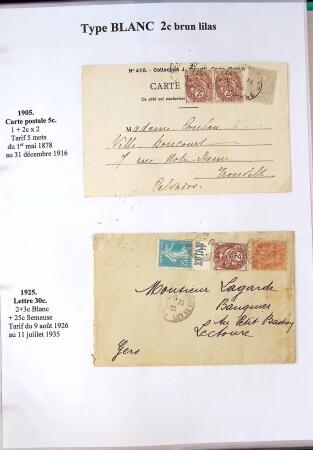 Type BLANC 2c brun lilas
1905.
Carte postale 5c.
1 + 2c x 2
Tarif 5 mots
du 1er mai 1878
au 31 décembre 1916
N° 410. - Collection
CARTE
Ce côté est exclusivement
Madame Poulon
Villa Boncourt
7 rue Notre Dame
Trouville
Calvados
1925.
Lettre 30c.
2+3c Blanc
+ 25c Semeuse
Tarif du 9 août 1926
au 11 juillet 1935
Monsieur Lagarde
Banquier
Au Petit Bastion
Lectoure
Gers